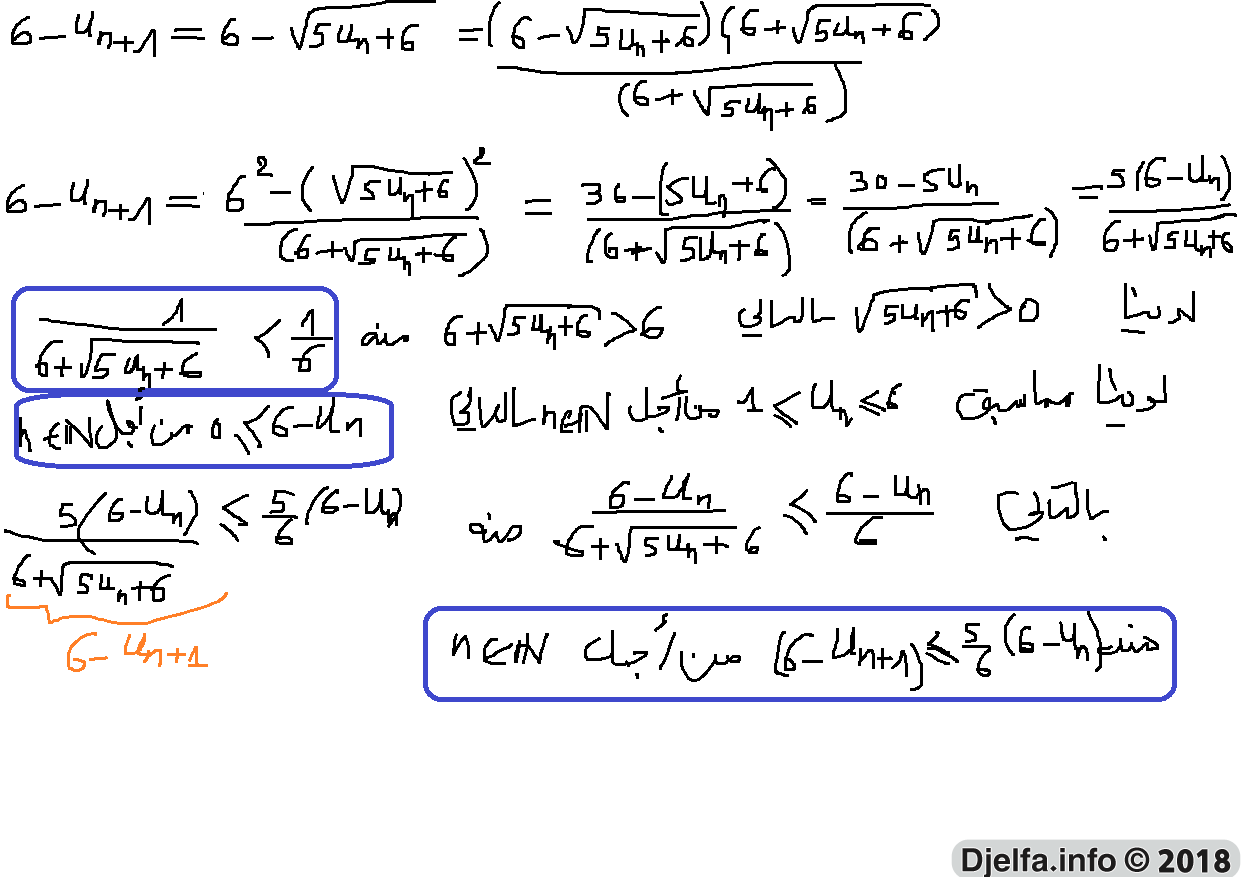 6 - u_{n+1} = 6 - √(5u_n+6) = (6 - √(5u_n+6))(6 + √(5u_n+6)) / (6 + √(5u_n+6))
6 - u_{n+1} = (6² - (√(5u_n+6))²) / (6 + √(5u_n+6)) = (36 - (5u_n+6)) / (6 + √(5u_n+6)) = (30 - 5u_n) / (6 + √(5u_n+6)) = 5(6 - u_n) / (6 + √(5u_n+6))
لدينا √(5u_n+6) > 0 بالتالي 6 + √(5u_n+6) > 6 منه 1 / (6 + √(5u_n+6)) < 1/6
لدينا مماسبق 1 ⩽ u_n ⩽ 6 من أجل n∈ℕ بالتالي 0 ⩽ 6 - u_n من أجل n∈ℕ
بالتالي (6 - u_n) / (6 + √(5u_n+6)) ⩽ (6 - u_n) / 6 منه 5(6 - u_n) / (6 + √(5u_n+6)) ⩽ 5/6 (6 - u_n)
6 - u_{n+1}
منه (6 - u_{n+1}) ⩽ 5/6 (6 - u_n) من أجل n∈ℕ
Djelfa.info © 2018